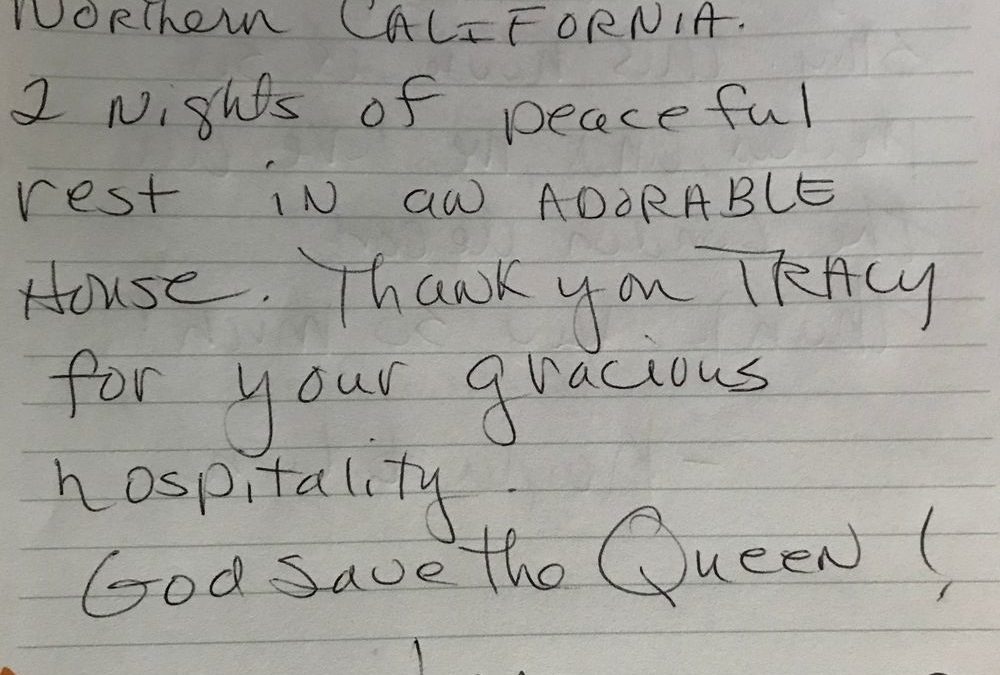 Northern CALIFORNIA.
2 Nights of peaceful
rest iN aN ADORABLE
House. Thank you TRACY
for your gracious
hospitality.
God Save the QueeN!